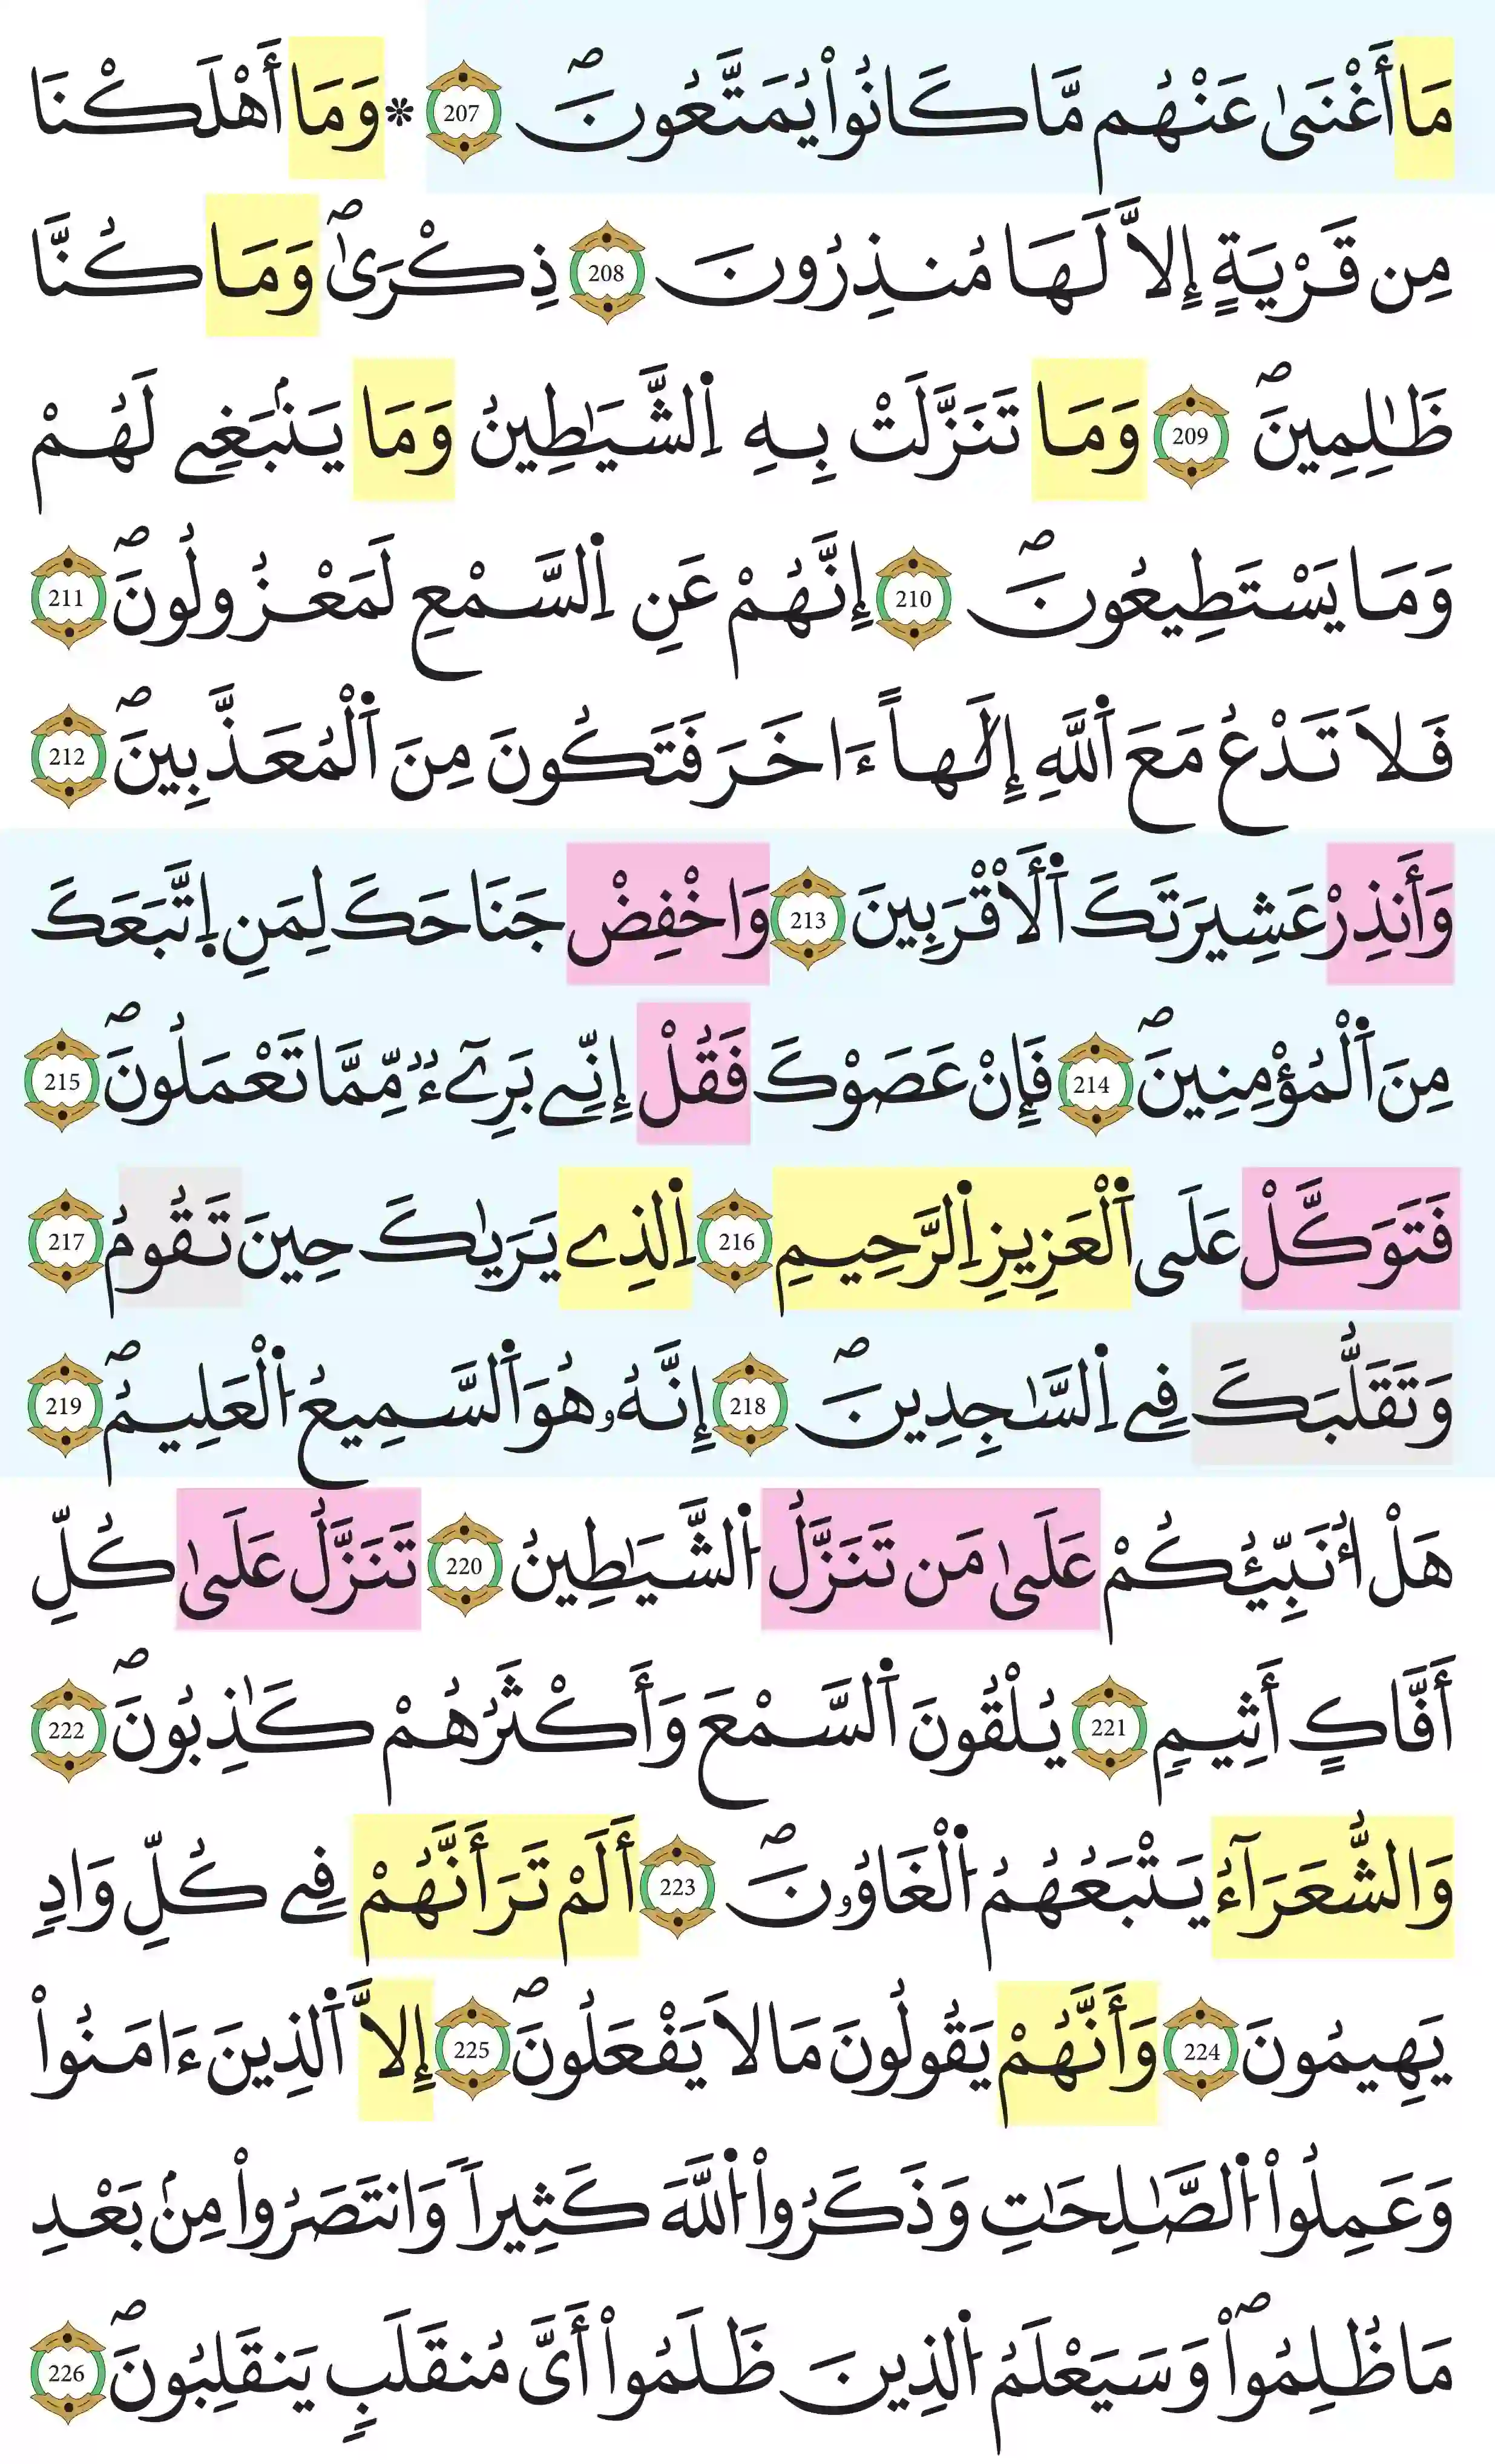 مَا أَغْنَىٰ عَنْهُم مَّا كَانُواْ يُمَتَّعُونَۖ 207 * وَمَا أَهْلَكْنَا
مِن قَرْيَةٍ إِلَّا لَهَا مُنذِرُونَ 208 ذِكْرَىٰۖ وَمَا كُنَّا
ظَٰلِمِينَۖ 209 وَمَا تَنَزَّلَتْ بِهِ اِ۬لشَّيَٰطِينُ وَمَا يَنۢبَغِے لَهُمْ
وَمَا يَسْتَطِيعُونَۖ 210 إِنَّهُمْ عَنِ اِ۬لسَّمْعِ لَمَعْزُولُونَۖ 211
فَلَا تَدْعُ مَعَ اَ۬للَّهِ إِلَٰهاً ءَاخَرَ فَتَكُونَ مِنَ اَ۬لْمُعَذَّبِينَۖ 212
وَأَنذِرْ عَشِيرَتَكَ اَ۬لْأَقْرَبِينَ 213 وَاخْفِضْ جَنَاحَكَ لِمَنِ اِ۪تَّبَعَكَ
مِنَ اَ۬لْمُؤْمِنِينَۖ 214 فَإِنْ عَصَوْكَ فَقُلْ إِنِّے بَرِےٓءٞ مِّمَّا تَعْمَلُونَۖ 215
فَتَوَكَّلْ عَلَى اَ۬لْعَزِيزِ اِ۬لرَّحِيمِ 216 اِ۬لذِے يَرَيٰكَ حِينَ تَقُومُ 217
وَتَقَلُّبَكَ فِے اِ۬لسَّٰجِدِينَۖ 218 إِنَّهُۥ هُوَ اَ۬لسَّمِيعُ اُ۬لْعَلِيمُۖ 219
هَلْ أُنَبِّئُكُمْ عَلَىٰ مَن تَنَزَّلُ اُ۬لشَّيَٰطِينُ 220 تَنَزَّلُ عَلَىٰ كُلِّ
أَفَّاكٍ أَثِيمٍ 221 يُلْقُونَ اَ۬لسَّمْعَ وَأَكْثَرُهُمْ كَٰذِبُونَۖ 222
وَالشُّعَرَآءُ يَتْبَعُهُمُ اُ۬لْغَاوُۥنَۖ 223 أَلَمْ تَرَ أَنَّهُمْ فِے كُلِّ وَادٍ
يَهِيمُونَ 224 وَأَنَّهُمْ يَقُولُونَ مَا لَا يَفْعَلُونَۖ 225 إِلَّا اَ۬لذِينَ ءَامَنُواْ
وَعَمِلُواْ اُ۬لصَّٰلِحَٰتِ وَذَكَرُواْ اُ۬للَّهَ كَثِيراً وَانتَصَرُواْ مِنۢ بَعْدِ
مَا ظُلِمُواْۖ وَسَيَعْلَمُ اُ۬لذِينَ ظَلَمُواْ أَىَّ مُنقَلَبٍ يَنقَلِبُونَۖ 226